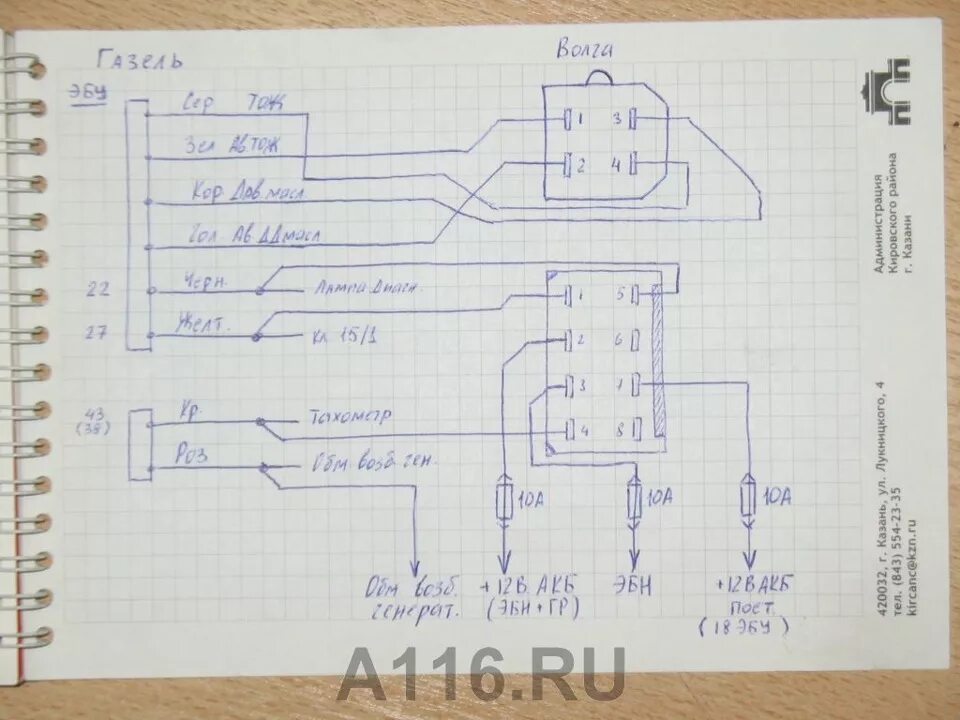 Газель
Волга
ЭБУ
Сер ТОЖ
Зел АвТОЖ
Кор Дав.масл
Гол. Ав.ДДмасл
22 Черн. Лампа Диагн.
27 Желт. Кл 15/1
1 3
2 4
1 5
2 6
3 7
4 8
43 Кр. Тахометр
(38)
Роз Обм возб. ген.
10А 10А 10А
Обм возб. генерат.
+12В. АКБ
(ЭБН+ГР)
ЭБН
+12В АКБ
пост.
(18 ЭБУ)
Администрация
Кировского района
г. Казани
420032, г. Казань, ул. Лукницкого, 4
тел. (843) 554-23-35
kircanc@kzn.ru
A116.RU